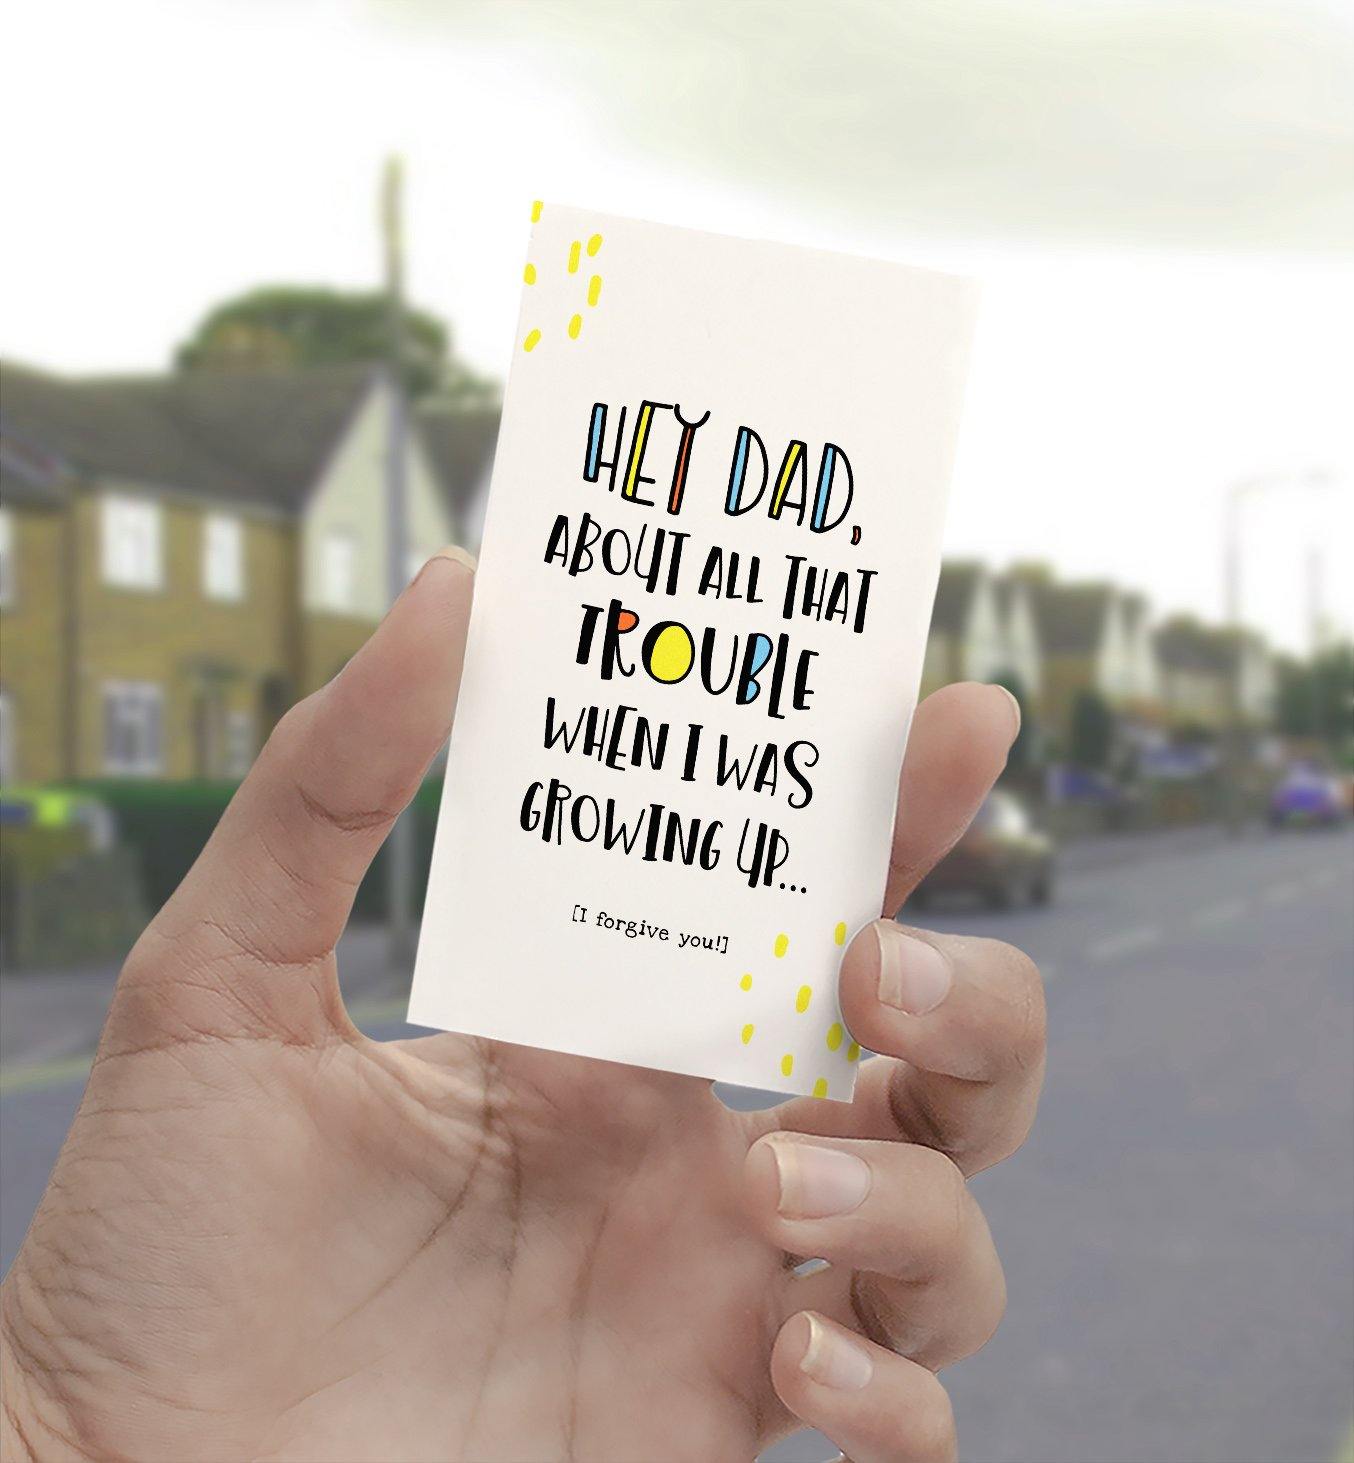 HEY DAD,
ABOUT ALL THAT
TROUBLE
WHEN I WAS
GROWING UP...
[I forgive you!]